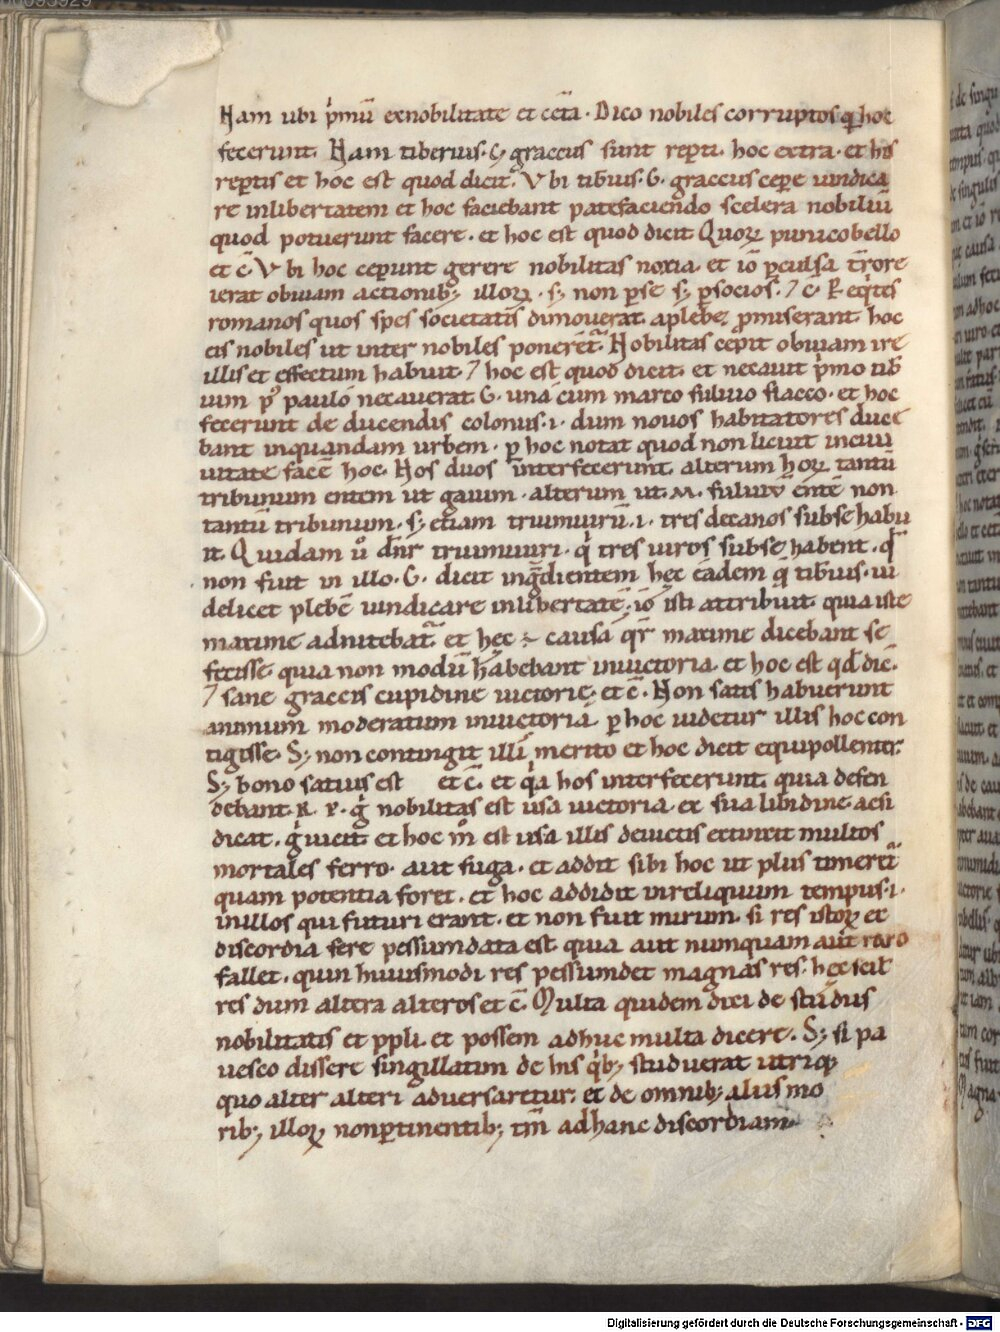 Nam ubi p̍mū exnobilitate et cet̄a. Dico nobiles corruptos q̄ hoc
fecerunt. Nam tiberius. C. graccus sunt rep̄ti. hoc extra. et his
rep̄tis et hoc est quod dicit. Vbi tib̄ius. G. graccus cepe uindica
re inlibertatem et hoc faciebant patefaciendo scelera nobiliū
quod potuerunt facere. et hoc est quod dicit Quoꝝ punicobello
et c̄. Vbi hoc ceperunt gerere nobilitas noxia. et iō p̄culsa t̄rore
ierat obuiam actionib; illoꝝ. s; non p̄se s; p̄socios. ⁊ c̄. R. eq̍tes
romanos quos spes societatis dimouerat aplebe, p̄miserant. hoc
eis nobiles ut inter nobiles poneret̄. Nobilitas cepit obuiam ire
illis et effectum habuit. ⁊ hoc est quod dicit. et necauit p̍mo tib̄
ium p̄ paulo necauerat G. unā cum marco fuluio flacco. et hoc
fecerunt de ducendis coloniis. i. dum nouos habitatores duce
bant inquandam urbem. p̄ hoc notat quod non licuit inciui
uitate facē hoc. Hos duos interfecerunt. alterum hoꝝ tantū
tribunum entem ut gaium. alterum ut. M. fuluiū entē non
tantū tribunum. s; etiam triumuirū. i. tres decanos subse habu
it. Quidam ů dn̄r triumuiri. q̍ tres uiros subse habent. q̄
non fuit in illo. G. dicit inḡdientem hec eadem q̄ tib̄ius. ui
delicet plebē uindicare inlibertatē. iō isti attribuit quia iste
maxime adnitebat̄. et hec ÷ causa q̄r maxime dicebant se
fecisse quia non modū habebant inuictoria. et hoc est qd̄ dic̄.
⁊ sane graccis cupidine uictorie. et c̄. Non satis habuerunt
animum moderatum inuictoria. p̄ hoc uidetur illis hoc con
tigisse. S; non contingit illi merito et hoc dicit equipollenter.
S; bono satius est et c̄. et q̍a hos interfecerunt. quia defen
debant. R. P. g̍ nobilitas est usa uictoria. ex sua libidine. acsi
dicat. g̍ uicit. et hoc m̊ est usa illis deuictis extinxit multos
mortales ferro. aut fuga. et addit sibi hoc ut plus timeret̄
quam potentia foret. et hoc addidit inreliquum tempus. i.
inillos qui futuri erant. et non fuit mirum. si res istoꝝ et
discordia fere pessumdata est. quia aut numquam aut raro
fallet. quin huiusmodi res pessumdet magnas res. hec scil̄
res dum altera alteros et c̄. Multa quidem dixi de studiis
nobilitatis et ppli. et possem adhuc multa dicere. S; si pa
uesco dissere singillatim de his q̍b; studuerat utriq;
quo alter alteri aduersaretur. et de omnib; aliis mo
rib; illoꝝ nonp̄tinentib; tm̄ adhanc discordiam.
Digitalisierung gefördert durch die Deutsche Forschungsgemeinschaft - DFG